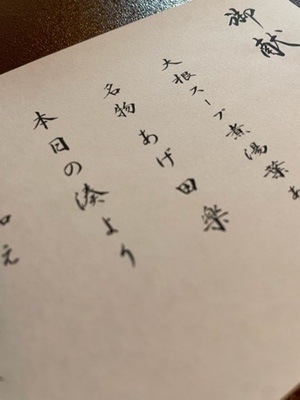 御献
大根スープ煮湯葉あ
名物 あげ田楽
本日の湊より